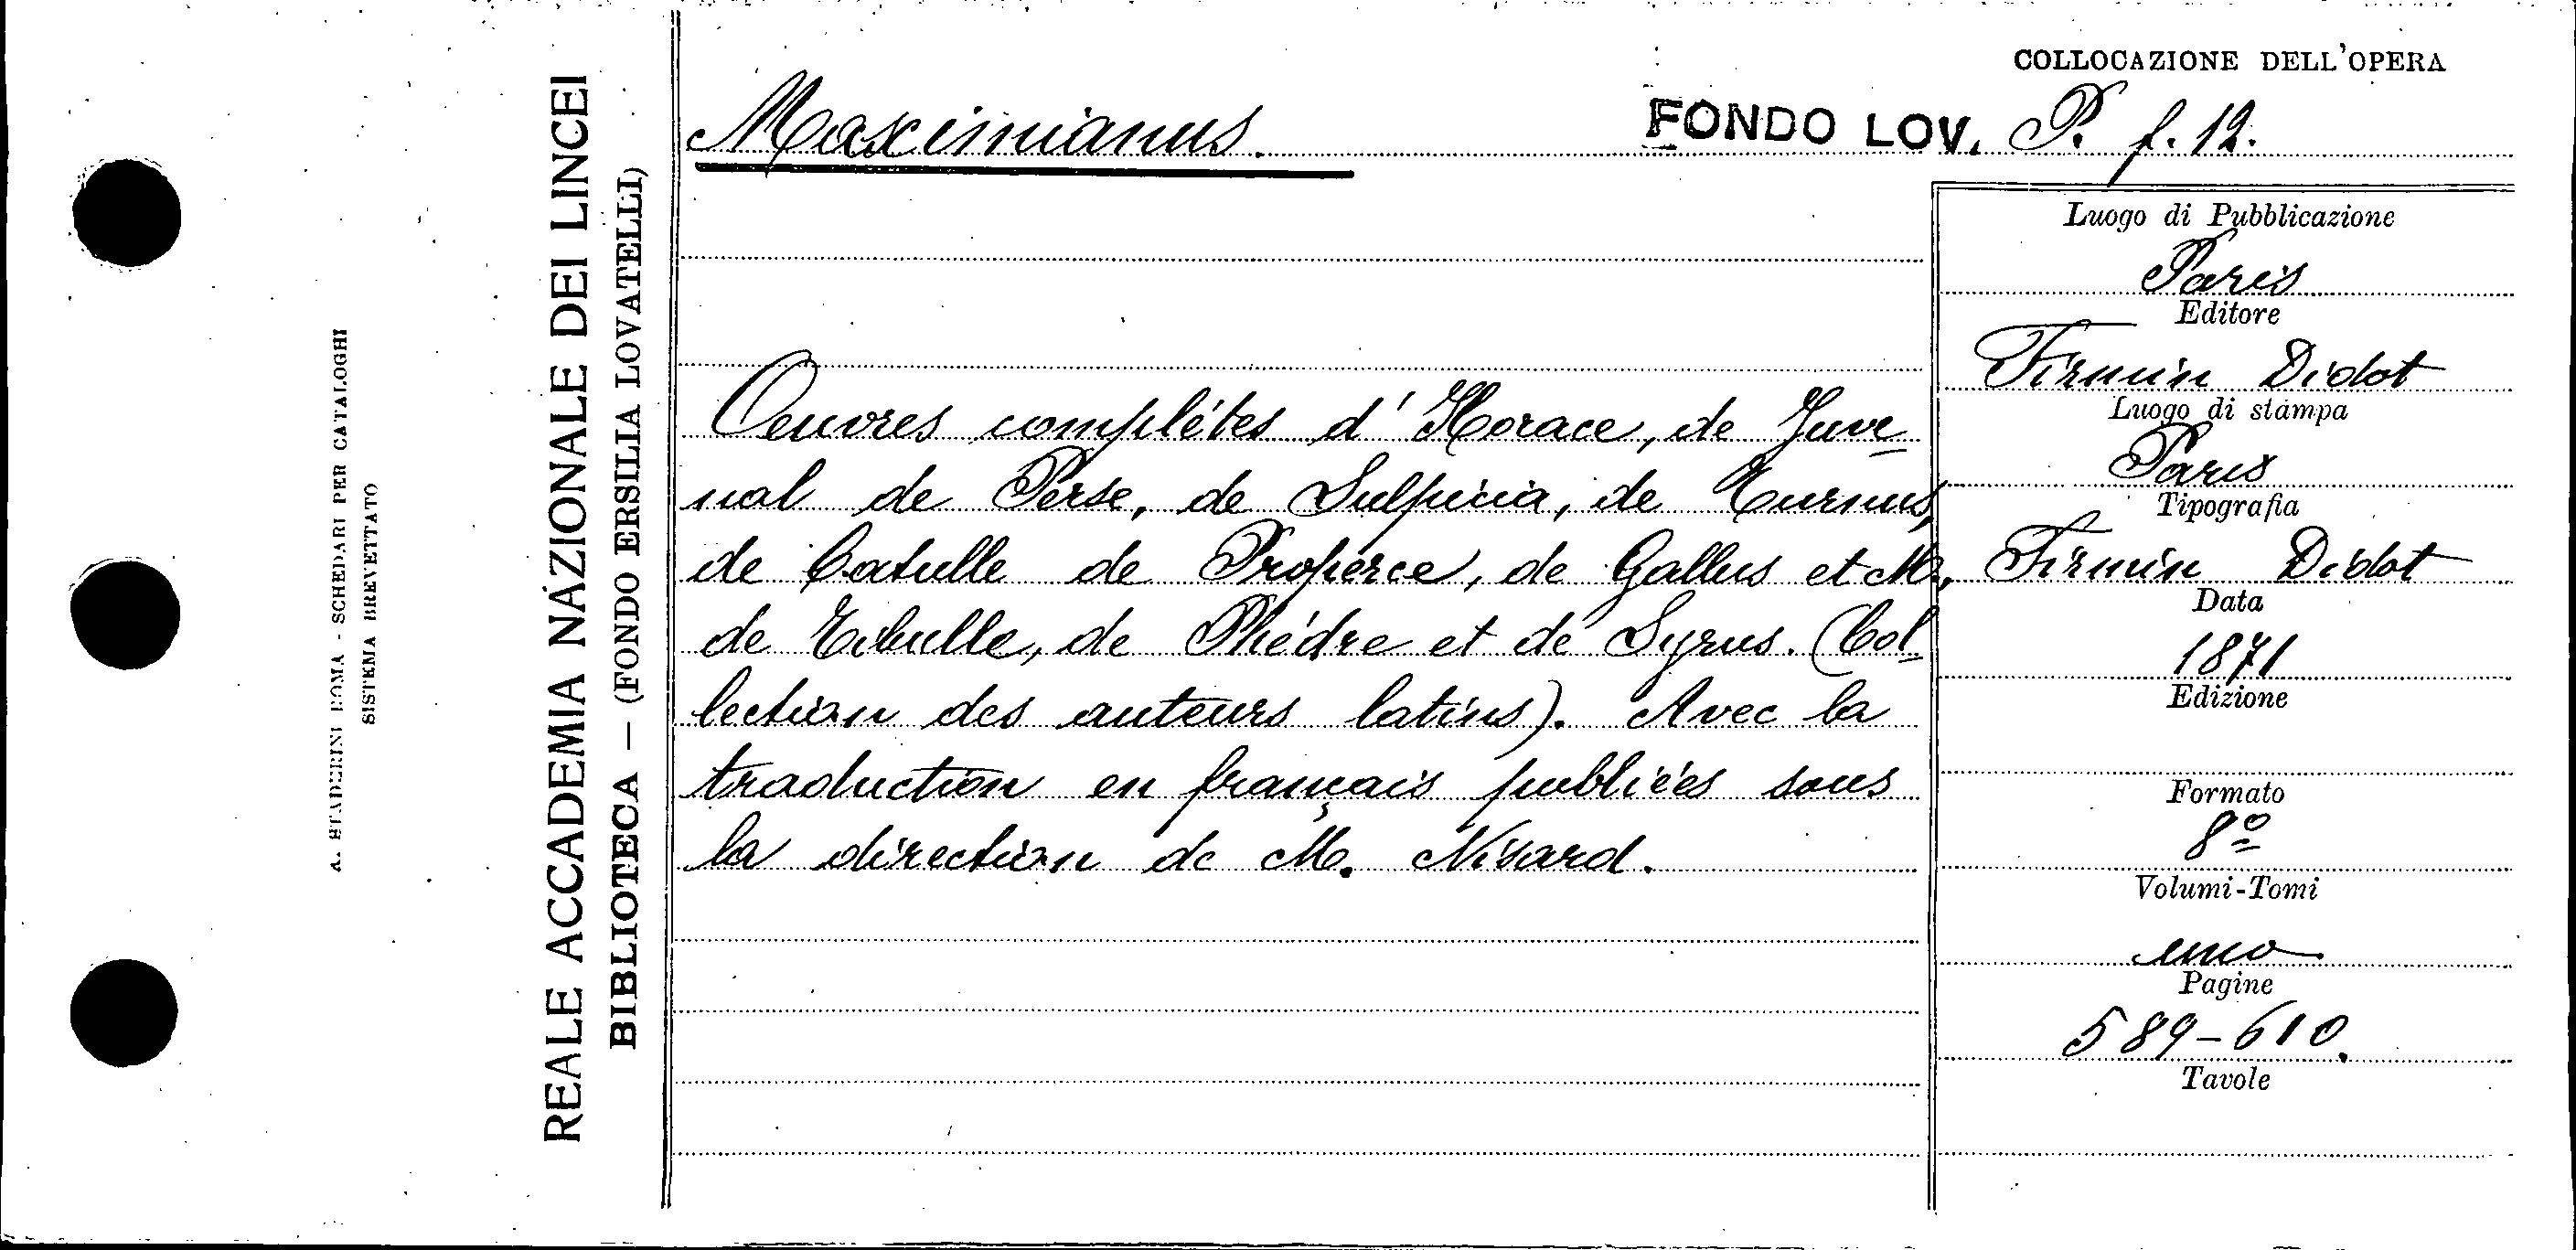 COLLOCAZIONE DELL'OPERA
Maximianus.
FONDO LOV. P. f. 12.
REALE ACCADEMIA NAZIONALE DEI LINCEI
BIBLIOTECA — (FONDO ERSILIA LOVATELLI)
A. STADERINI ROMA - SCHEDARI PER CATALOGHI
SISTEMA BREVETTATO
Oeuvres complétes d'Horace, de Juve
nal de Perse, de Sulpicia, de Turnus,
de Catulle de Properce, de Gallus et M.,
de Tibulle, de Phédre et de Syrus. (Col-
lection des auteurs latins). Avec la
traduction en français publiées sous
la direction de M. Nisard.
Luogo di Pubblicazione
Paris
Editore
Firmin Didot
Luogo di stampa
Paris
Tipografia
Firmin Didot
Data
1871
Edizione
Formato
8º
Volumi-Tomi
uno
Pagine
589-610.
Tavole